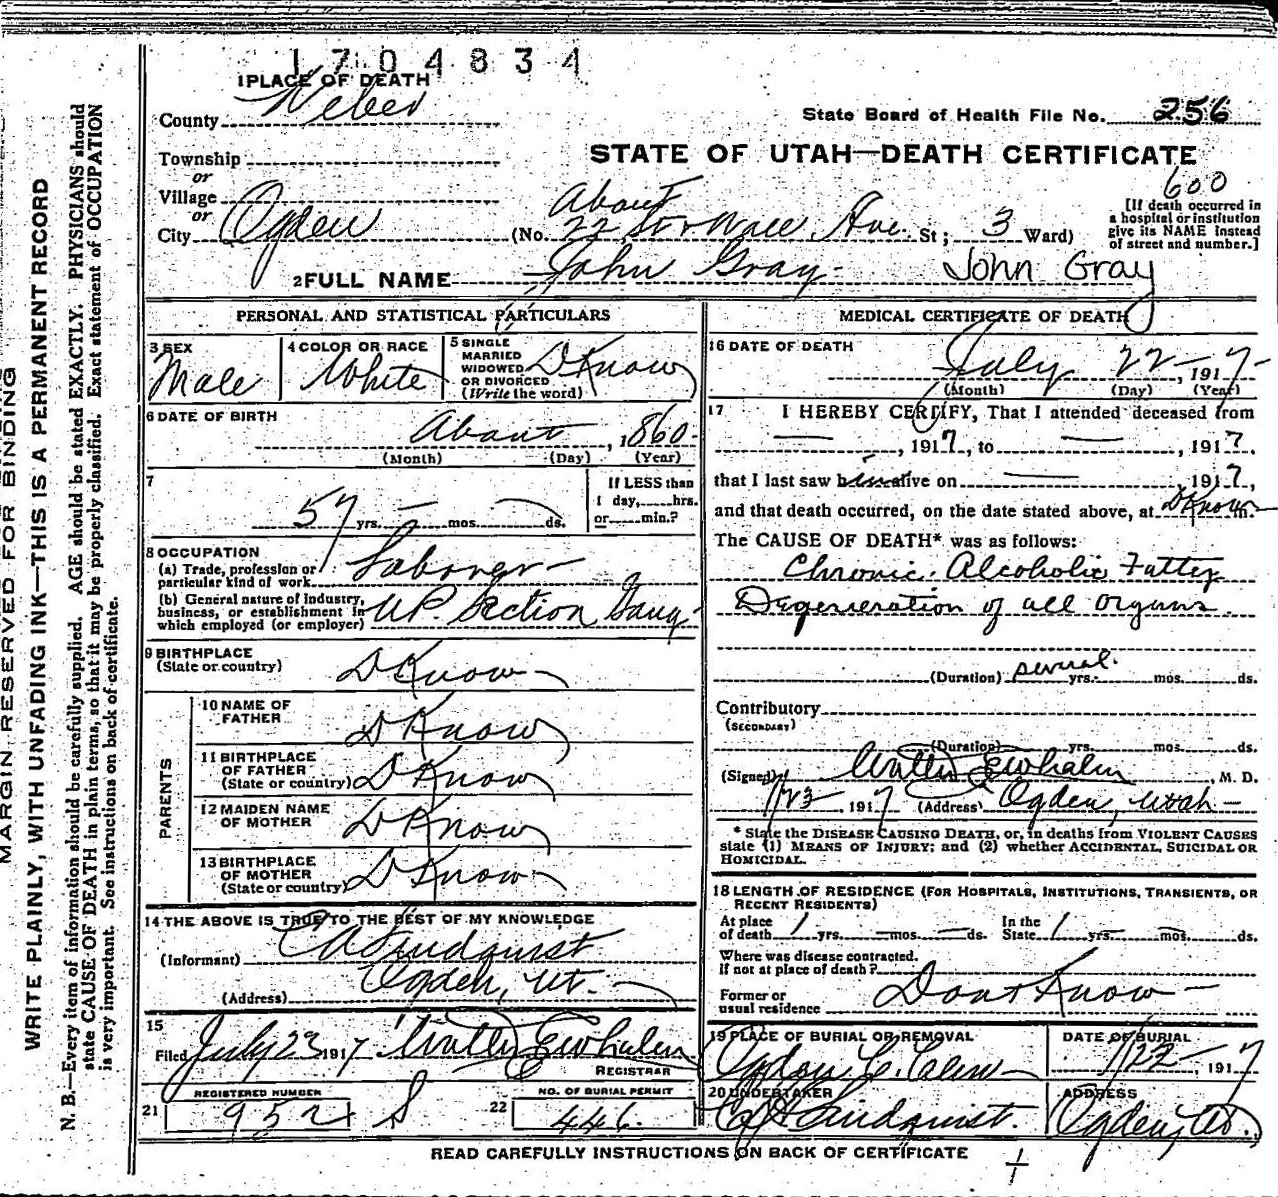 1704834
1 PLACE OF DEATH
County Weber
State Board of Health File No. 256
Township
or
Village
or
City Ogden
STATE OF UTAH—DEATH CERTIFICATE
600
About
(No. 22 St & Wall Ave. St; 3 Ward)
[If death occurred in
a hospital or institution
give its NAME instead
of street and number.]
2 FULL NAME John Gray John Gray
PERSONAL AND STATISTICAL PARTICULARS
3 SEX
Male
4 COLOR OR RACE
White
5 SINGLE
MARRIED
WIDOWED
OR DIVORCED
(Write the word)
D Know
6 DATE OF BIRTH
About, 1860
(Month) (Day) (Year)
7
57 yrs. — mos. — ds.
If LESS than
1 day, hrs.
or min.?
8 OCCUPATION
(a) Trade, profession or
particular kind of work Laborer
(b) General nature of industry,
business, or establishment in
which employed (or employer) U.P. Section Gang
9 BIRTHPLACE
(State or country) D Know
PARENTS
10 NAME OF
FATHER D Know
11 BIRTHPLACE
OF FATHER
(State or country) D Know
12 MAIDEN NAME
OF MOTHER D Know
13 BIRTHPLACE
OF MOTHER
(State or country) D Know
14 THE ABOVE IS TRUE TO THE BEST OF MY KNOWLEDGE
(Informant) Lindquist
(Address) Ogden, Ut.
15
Filed July 23 1917 Walter Ewhalen
REGISTRAR
REGISTERED NUMBER
21 952
NO. OF BURIAL PERMIT
22 446
MEDICAL CERTIFICATE OF DEATH
16 DATE OF DEATH
July 22, 1917
(Month) (Day) (Year)
17 I HEREBY CERTIFY, That I attended deceased from
—, 1917, to — 1917
that I last saw him alive on — 1917,
and that death occurred, on the date stated above, at D Know m.
The CAUSE OF DEATH* was as follows:
Chronic Alcoholic Fatty
Degeneration of all Organs
(Duration) several yrs. mos. ds.
Contributory
(SECONDARY)
(Duration) yrs. mos. ds.
(Signed) Walter Ewhalen, M. D.
7/23 1917 (Address) Ogden, Utah
* State the DISEASE CAUSING DEATH, or, in deaths from VIOLENT CAUSES
state (1) MEANS OF INJURY; and (2) whether ACCIDENTAL, SUICIDAL OR
HOMICIDAL.
18 LENGTH OF RESIDENCE (FOR HOSPITALS, INSTITUTIONS, TRANSIENTS, OR
RECENT RESIDENTS)
At place
of death 1 yrs. — mos. — ds.
In the
State 1 yrs. — mos. ds.
Where was disease contracted.
if not at place of death?
Former or
usual residence Dont Know
19 PLACE OF BURIAL OR REMOVAL
Ogden C. Cem
DATE OF BURIAL
1917
20 UNDERTAKER
Lindquist.
ADDRESS
Ogden, Ut.
READ CAREFULLY INSTRUCTIONS ON BACK OF CERTIFICATE
MARGIN RESERVED FOR BINDING
WRITE PLAINLY, WITH UNFADING INK—THIS IS A PERMANENT RECORD
N. B.—Every item of information should be carefully supplied. AGE should be stated EXACTLY. PHYSICIANS should
state CAUSE OF DEATH in plain terms, so that it may be properly classified. Exact statement of OCCUPATION
is very important. See instructions on back of certificate.